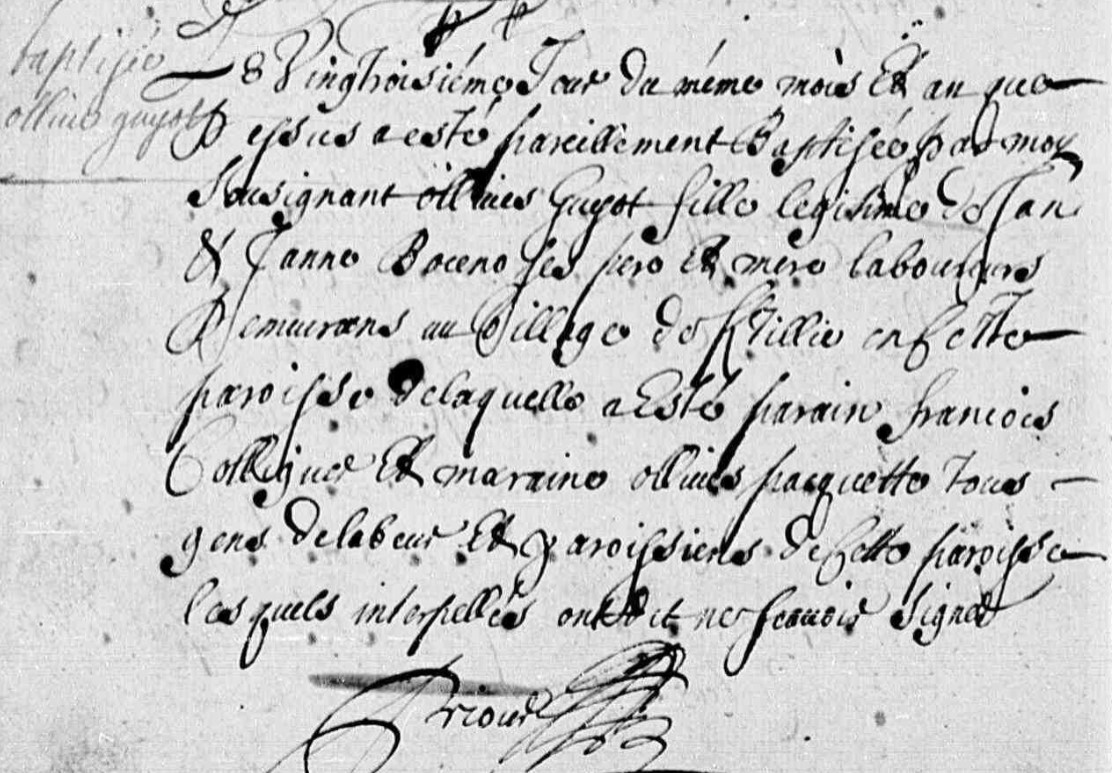 baptisée
olliue guyot
Le Vingtroisiéme Jour du méme mois Et an que
Dessus a esté pareillement Baptisée par moy
Sousignant olliues Guyot fille legitime de Jan
& Janne Boceno ses pere Et mere laboureurs
Demeurans au Village de Ktillio en Cette
paroisse delaquelle a Esté parain francois
Et maraine olliues pacquette Tous
gens delabeur Et paroissiens de Cette paroisse
les quels interpellés ont dit ne sçauoir signer
Priour